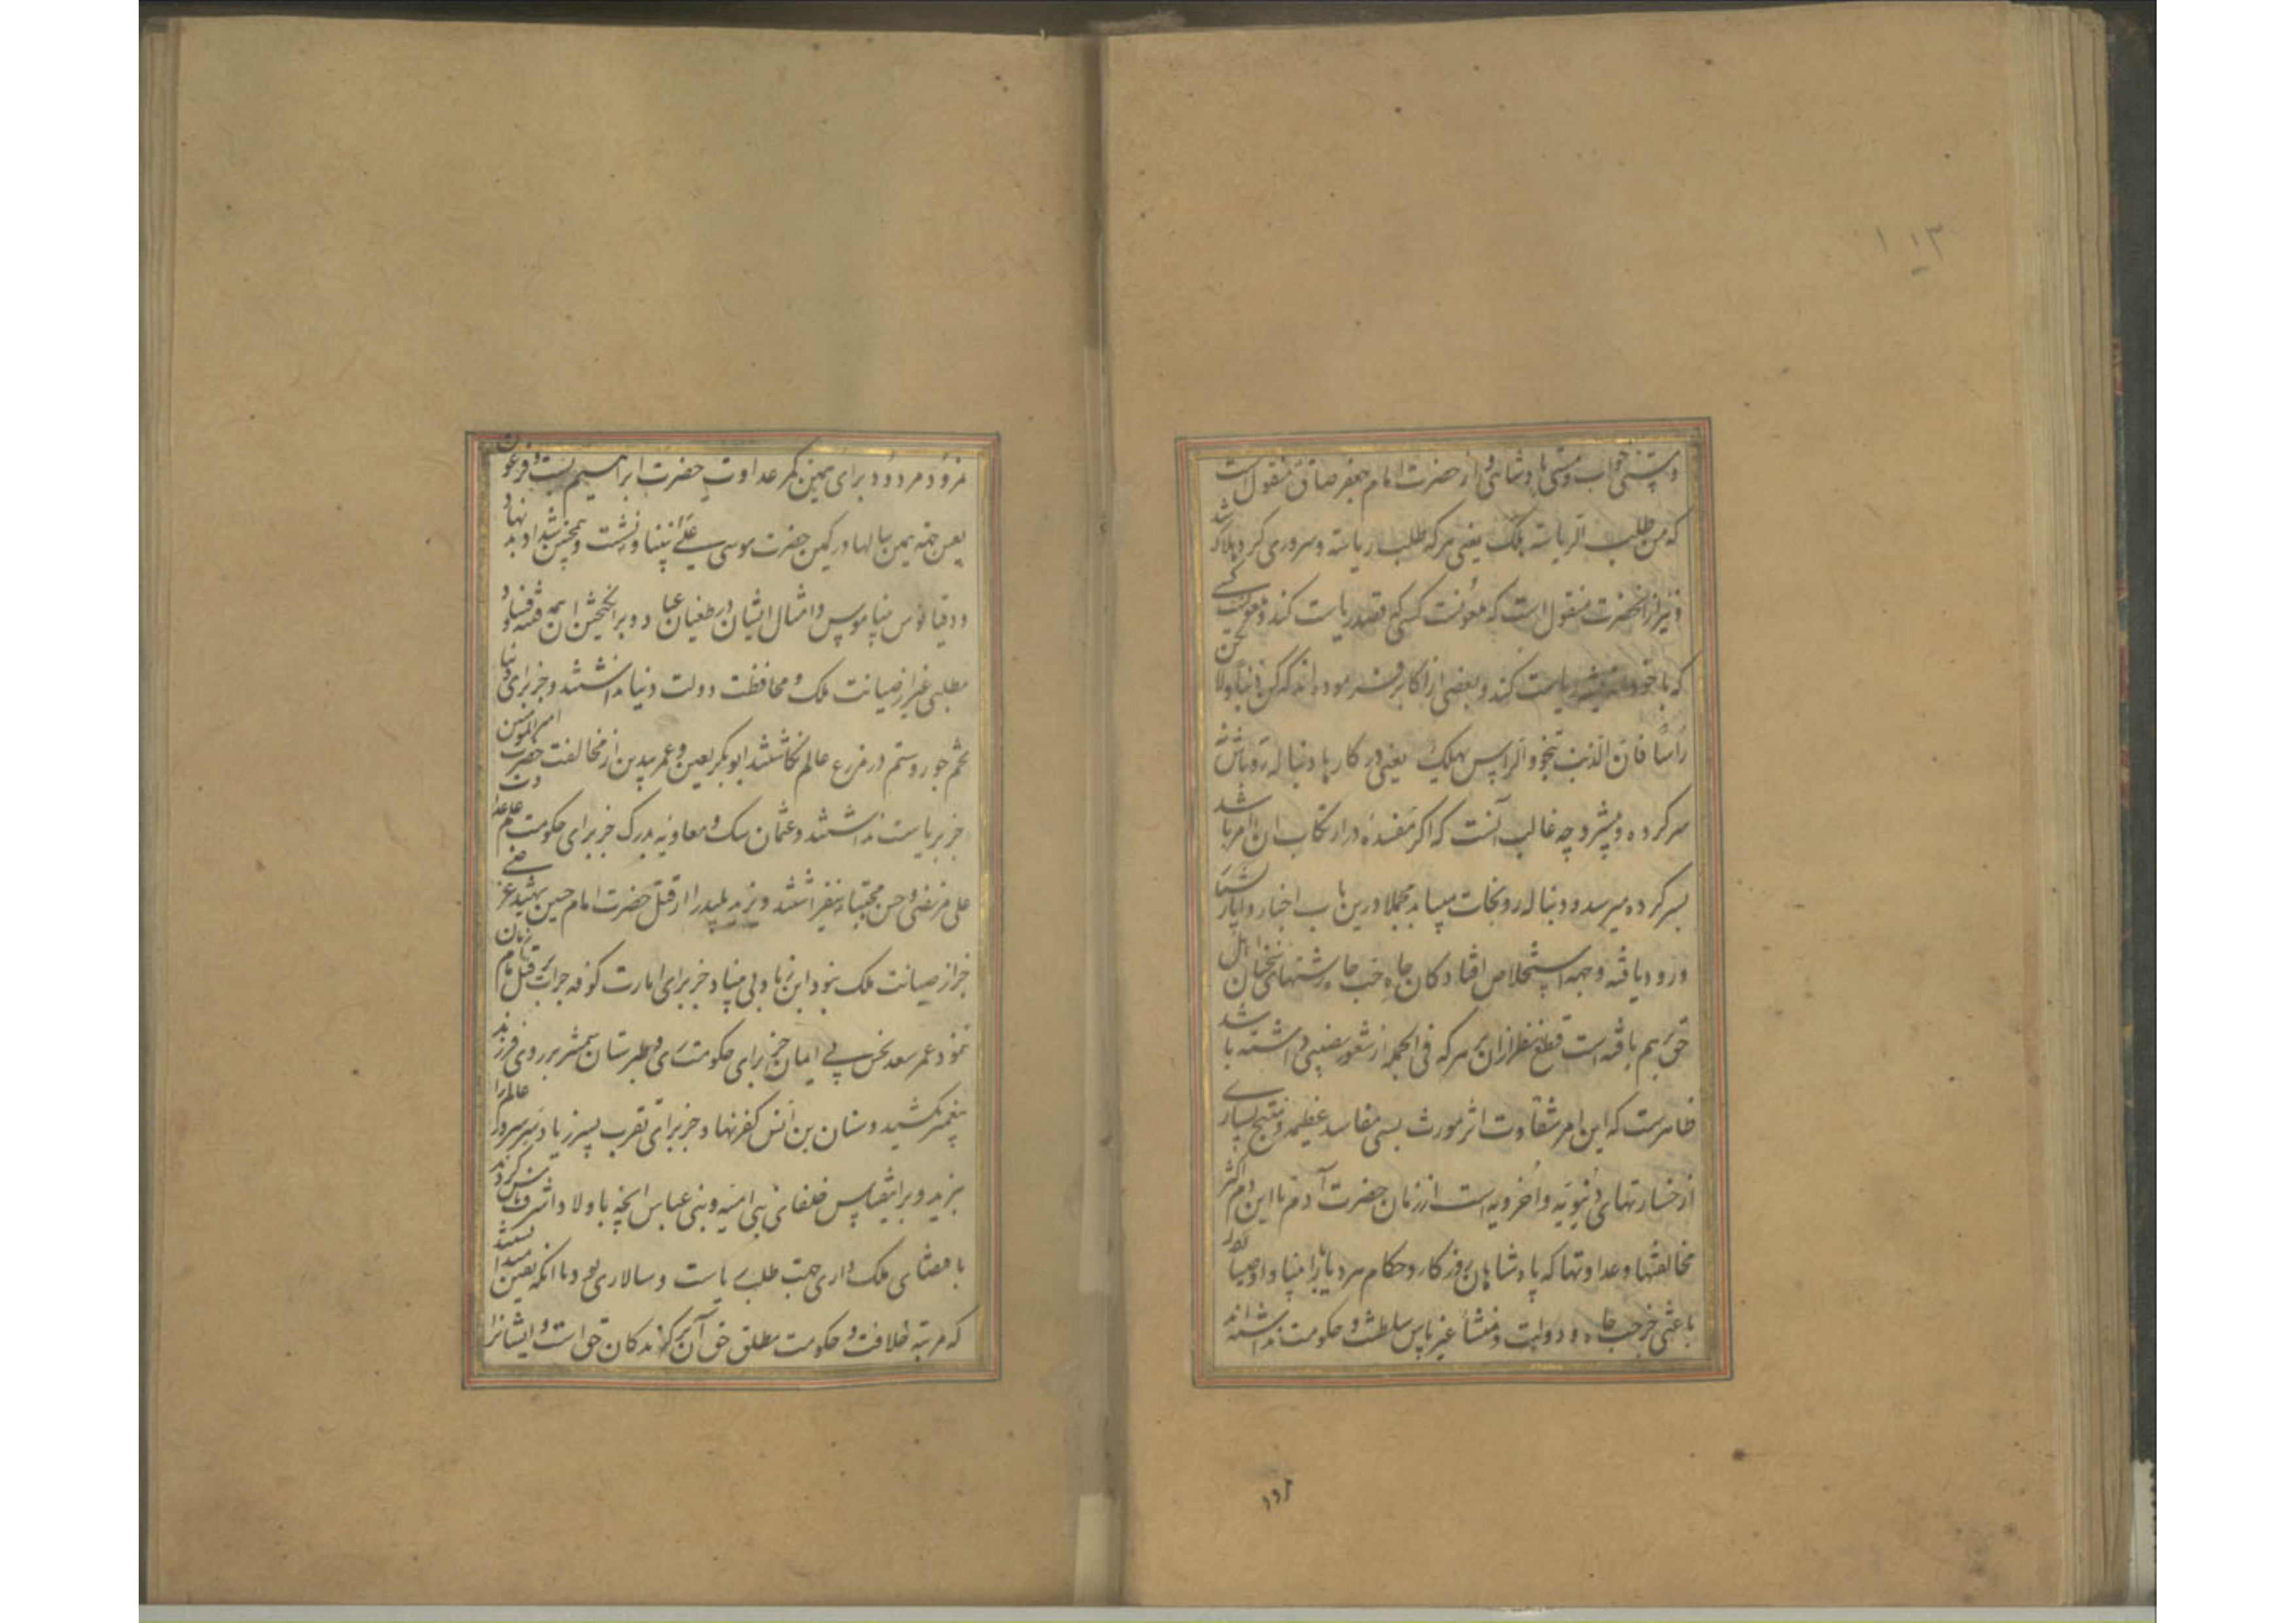 ۱۱۳
و مستی جواب و مستی پادشاهی و از حضرت امام جعفر صادق منقول است
که من طلب الریاسة هلک یعنی هر که طلب ریاسة و سروری کرد هلاک شد
و نیز از انحضرت منقول است که معونت کسی که قصد ریاست کند
که با خود اندیشه ریاست کند و بعضی از اکابر فرموده اند که کن ذنبا و لا تکن
راسا فان الذنب ینجو و الراس یهلک یعنی در کارها دنباله رو باش نه
سرکرده و پیشرو چه غالب آنست که اگر مفسده در ارتکاب ان امر باشد
بسر کرده میرسد و دنباله رو نجات مییابد مجملا درین باب اخبار و آثار
ورود یافته و جهه استخلاص افتادکان چاه حب جاه رشتهای اهل
حق بهم بافته است قطع نظر از ان بر هر که فی الجمله از شعور نصیبی داشته باشد
ظاهرست که این امر شقاوت اثر مورث بسی مفاسد عظیمه و منتج بسیاری
از خسارتهای دنیویه و اخرویه است از زمان حضرت آدم تا این دم اکثر
مخالفتها و عداوتها که پادشاهان روزکار و حکام هر دیار را با انبیا و اوصیا بود
باعثی جز حب جاه و دولت و منشأ غیر پاس سلطنت و حکومت نداشته اند
نمرود مردود برای همین کمر عداوت حضرت ابراهیم بست و فرعون
لعین جهة همین سالها در کمین حضرت موسی علی نبینا و نشست و همچنین شداد بد نهاد
و دقیانوس بیناموس و امثال ایشان در طغیان عباد و برانگیختن این همه فتنه و فساد
مطلبی غیر از صیانت ملک و محافظت دولت دنیا نداشتند و جز برای دنیا
تخم جور و ستم در مزرع عالم نکاشتند ابو بکر لعین و عمر بیدین از مخالفت حضرت امیر المؤمنین
جز ریاست نداشتند و عثمان سک و معاویه بدرک جز برای حکومت علم عداوت
علی مرتضی و حسن مجتبا نیفراشتند و یزید پلید را از قتل حضرت امام حسین شهید غرضی
جز از صیانت ملک نبود ابن زیاد بی بنیاد جز برای امارت کوفه جرأت بر قتل امام زمان
نمود عمر سعد نحس بی ایمان جز برای حکومت ری و طبرستان شمشیر بر روی فرزند
پیغمبر نکشید و سنان بن انس کفر نهاد جز برای تقرب پسر زیاد سر سرور عالم را
نبرید و برین قیاس خلفای بنی امیه و بنی عباس انچه با اولاد اشرف ناس کردند
با مضای ملک داری جهت طلب ریاست و سالاری بود با انکه یقین میدانستند
که مرتبه خلافت و حکومت مطلق حق آن برگزیدکان حق است و ایشانرا